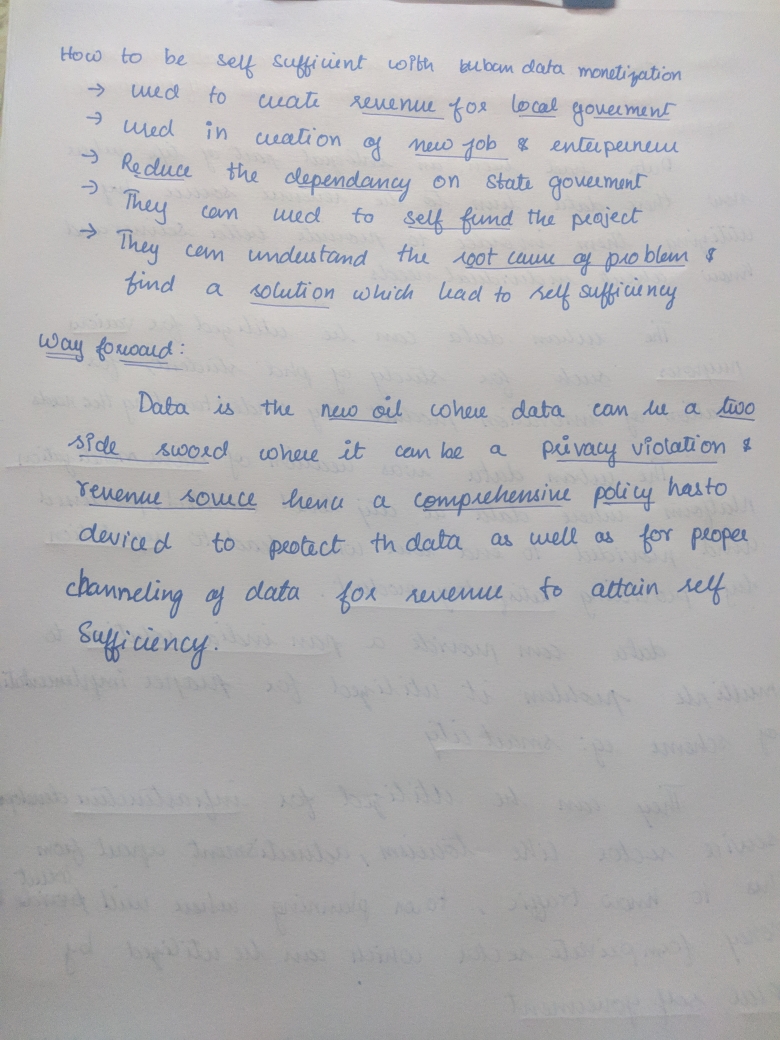 How to be self sufficient with urban data monetization
→ used to create revenue for local goverment
→ used in creation of new job & enterpreneur
→ Reduce the dependancy on state goverment
→ They can used to self fund the project
→ They can understand the root cause of problem &
find a solution which lead to self sufficiency
Way forward:
Data is the new oil where data can be a two
side sword where it can be a privacy violation &
revenue source hence a comprehensive policy hasto
deviced to protect th data as well as for proper
channeling of data for revenue to attain self
Sufficiency.